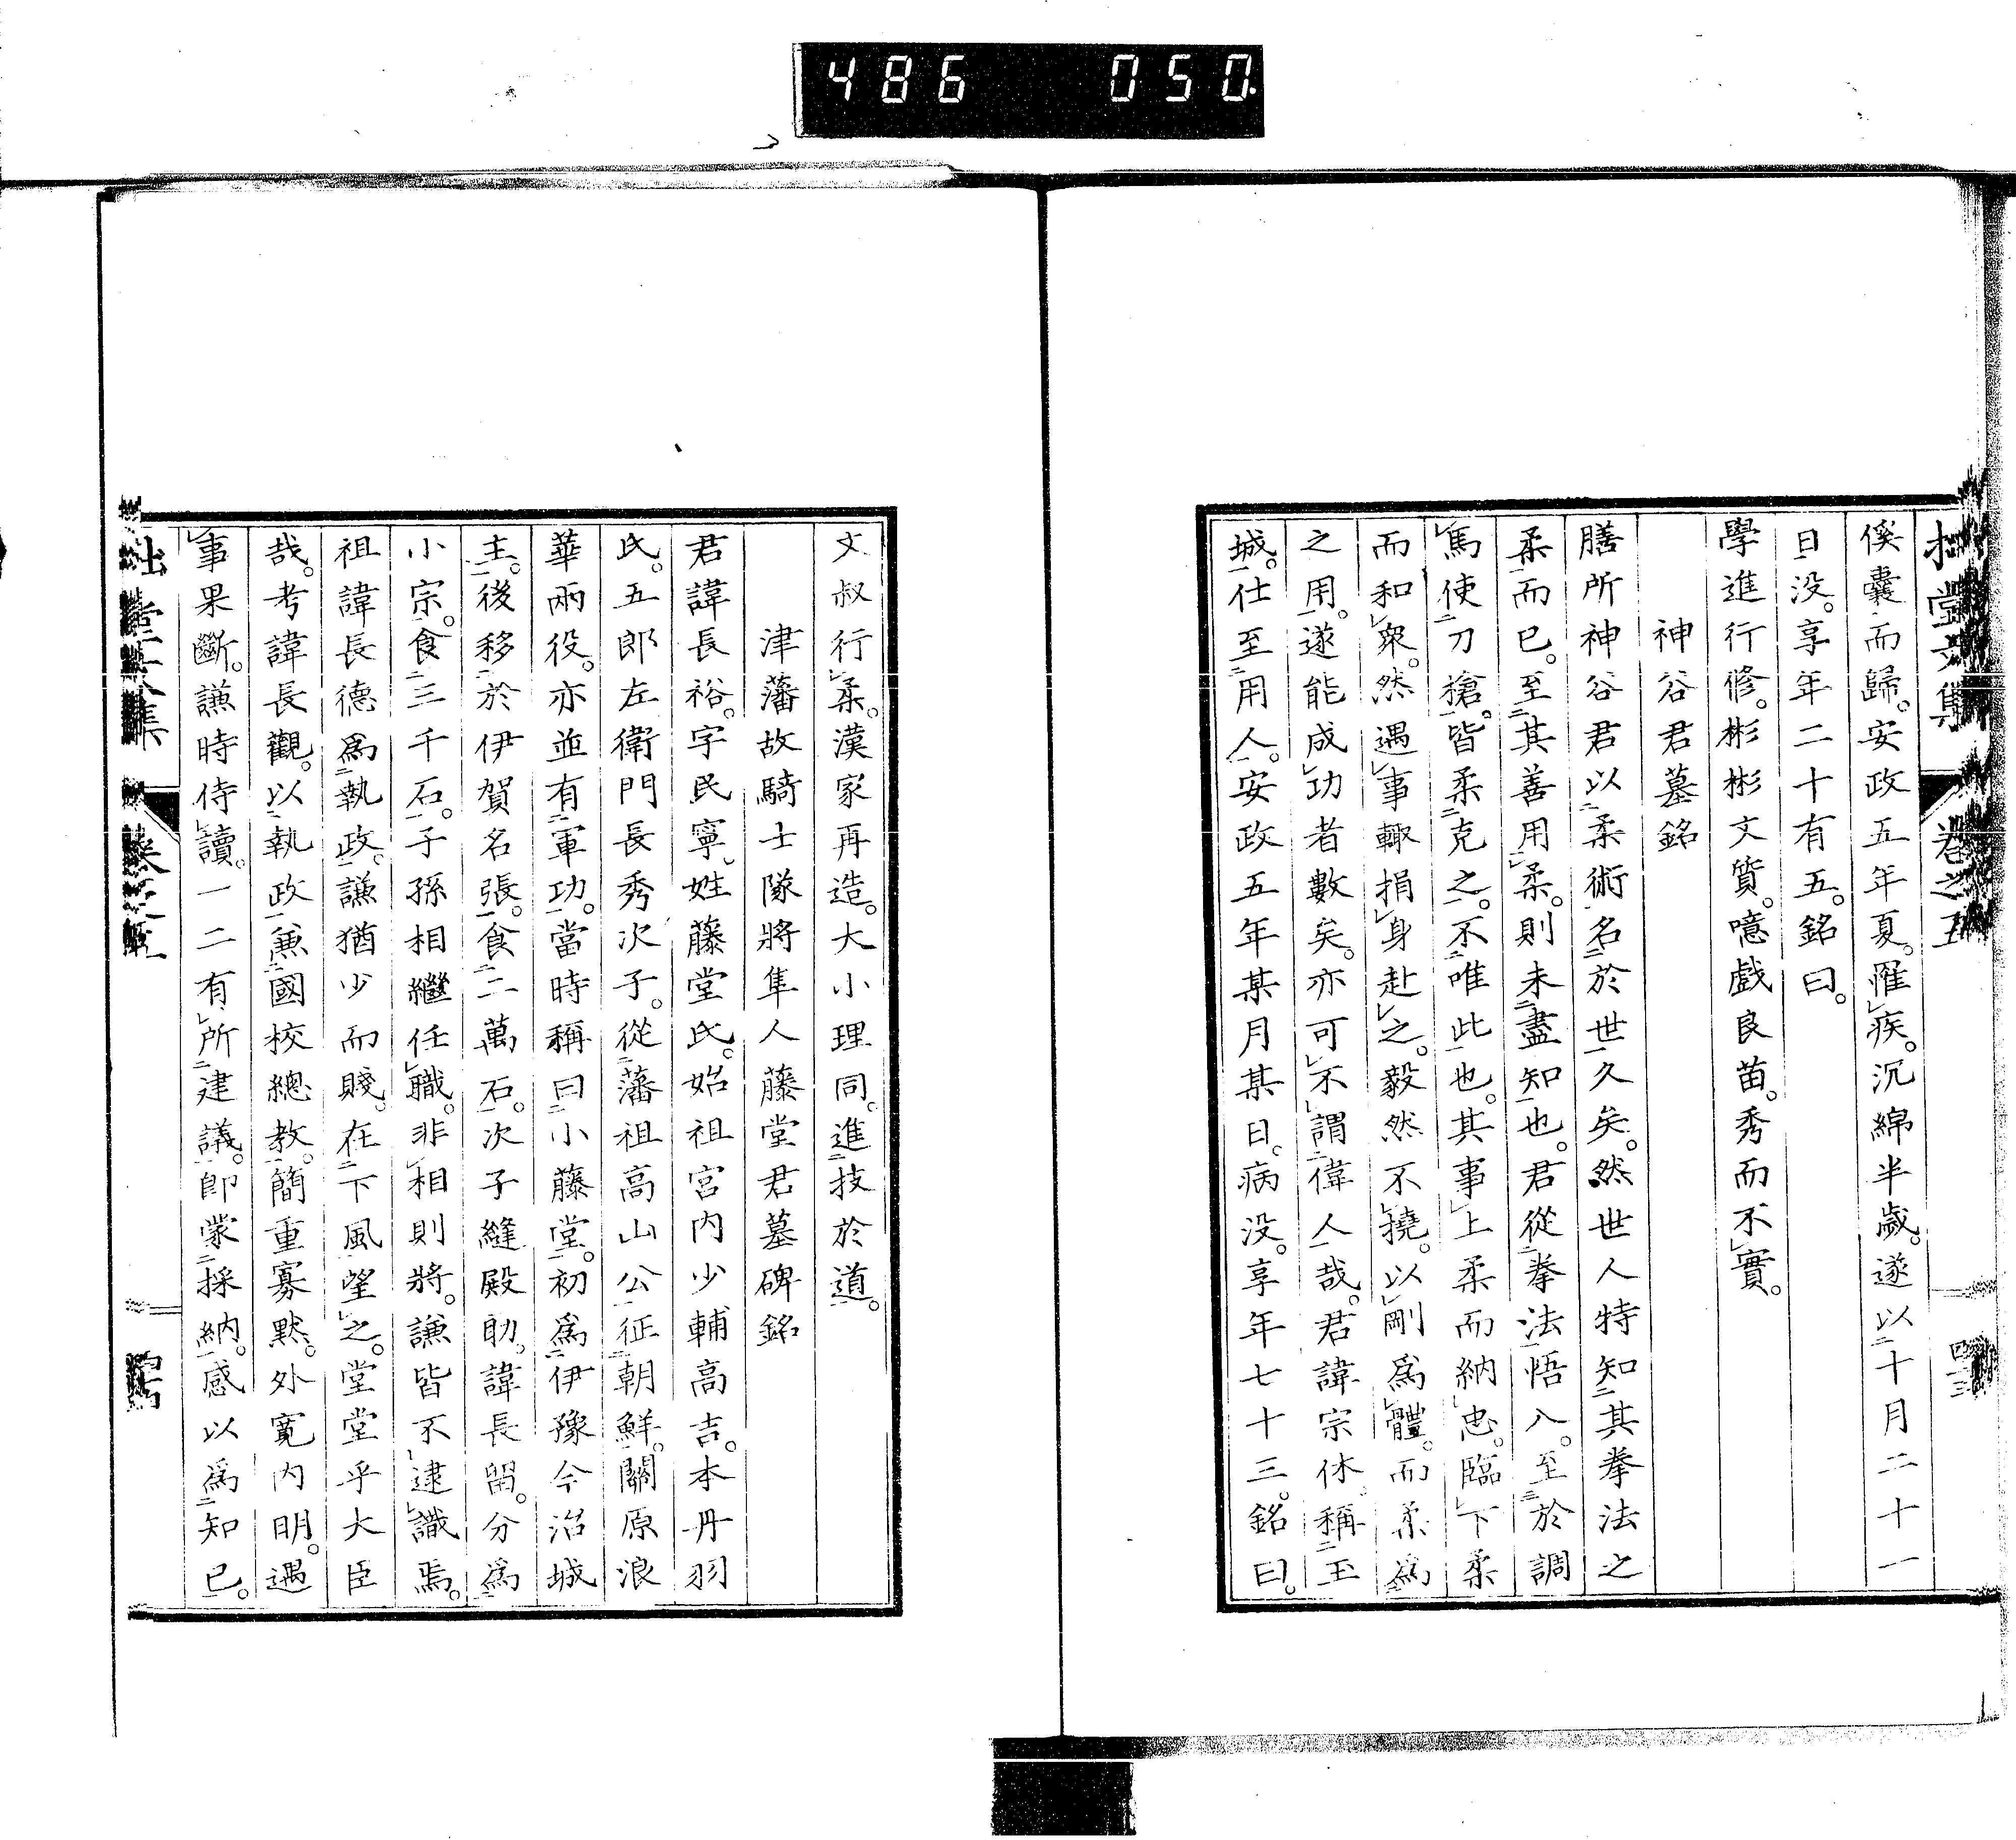 486 050
拙堂文集 卷之五 四十三
傒囊而歸。安政五年夏。罹疾。沉綿半歲。遂以十月二十一
日没。享年二十有五。銘曰。
學進行修。彬彬文質。噫戲良苗。秀而不實。
神谷君墓銘
膳所神谷君以柔術名於世久矣。然世人特知其拳法之
柔而已。至其善用柔。則未盡知也。君從拳法悟入。至於調
馬使刀槍。皆柔克之。不唯此也。其事上柔而納忠。臨下柔
而和衆。然遇事輙捐身赴之。毅然不撓。以剛爲體。而柔爲
之用。遂能成功者數矣。亦可不謂偉人哉。君諱宗休。稱玉
城。仕至用人。安政五年某月某日。病没。享年七十三。銘曰。
文叔行柔。漢家再造。大小理同。進技於道。
津藩故騎士隊將隼人藤堂君墓碑銘
君諱長裕。字民寧。姓藤堂氏。始祖宮内少輔高吉。本丹羽
氏。五郎左衛門長秀次子。從藩祖高山公征朝鮮。關原浪
華兩役。亦並有軍功。當時稱曰小藤堂。初爲伊豫今治城
主。後移於伊賀名張。食二萬石。次子縫殿助。諱長留。分爲
小宗。食三千石。子孫相繼任職。非相則將。謙皆不逮識焉。
祖諱長德爲執政。謙猶少而賤。在下風望之。堂堂乎大臣
哉。考諱長觀。以執政兼國校總教。簡重寡默。外寬内明。遇
事果斷。謙時侍讀。一二有所建議。即蒙採納。感以爲知已。
拙堂文集 卷之五